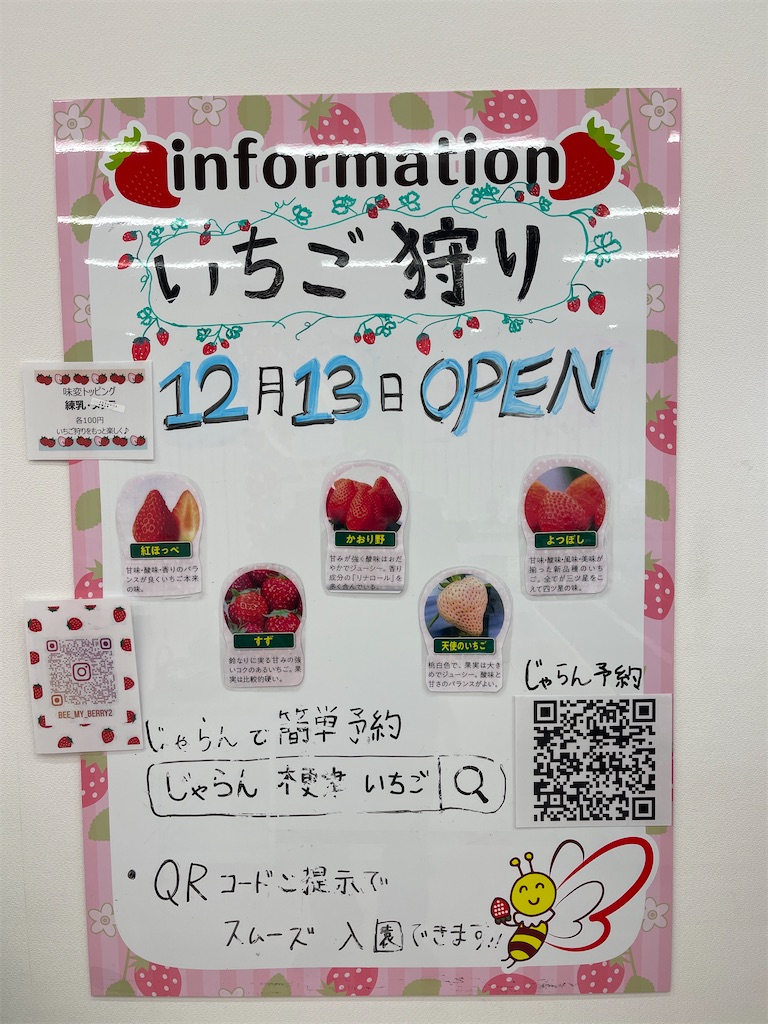 information
いちご狩り
12月13日 OPEN
味変トッピング
練乳・
各100円
いちご狩りをもっと楽しく♪
紅ほっぺ
甘味・酸味・香りのバラ
ンスが良くいちご本来
の味。
かおり野
甘みが強く酸味はおだ
やかでジューシー。香り
成分の「リナロール」を
多く含んでいる。
よつぼし
甘味・酸味・風味・美味が
揃った新品種のいち
ご。全てが三ツ星をこ
えて四ツ星の味。
すず
鈴なりに実る甘みの強
いコクのあるいちご。果
実は比較的硬い。
天使のいちご
桃白色で、果実は大き
めでジューシー。酸味と
甘さのバランスがよい。
BEE_MY_BERRY2
じゃらん予約
じゃらんで簡単予約
じゃらん 木更津 いちご
・QRコードご提示で
スムーズ 入園できます!!